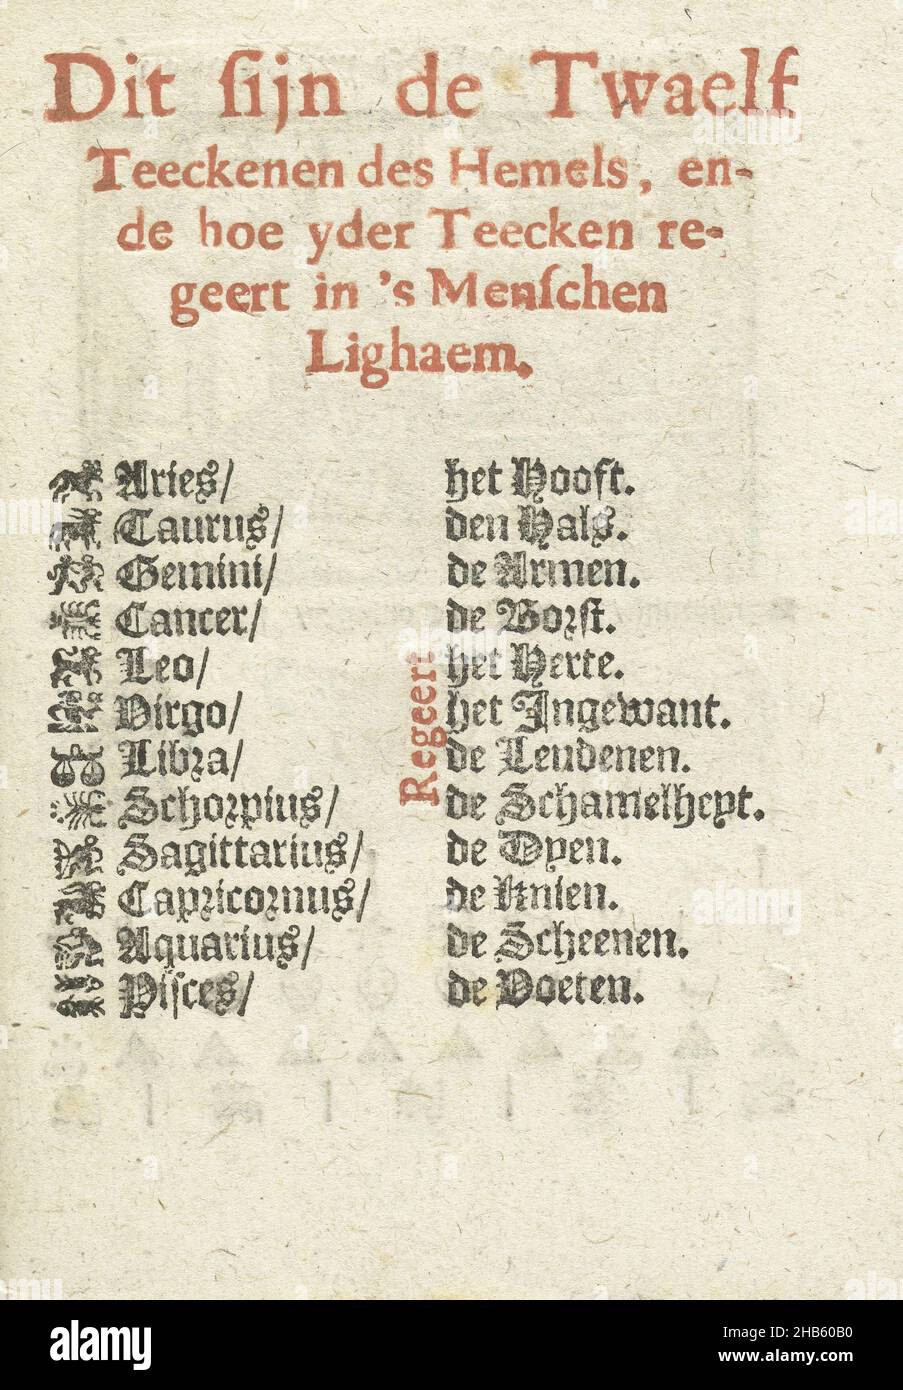 Dit ſijn de Twaelf
Teeckenen des Hemels, en-
de hoe yder Teecken re-
geert in 's Menſchen
Lighaem.
Aries/ het Hooft.
Taurus/ den Hals.
Gemini/ de Armen.
Cancer/ de Borst.
Leo/ het Herte.
Virgo/ het Ingewant.
Libra/ de Lendenen.
Schorpius/ de Schamelheyt.
Sagittarius/ de Dyen.
Capricornus/ de Knien.
Aquarius/ de Scheenen.
Piſces/ de Voeten.
Regeert
alamy
Image ID: 2HB60B0
www.alamy.com